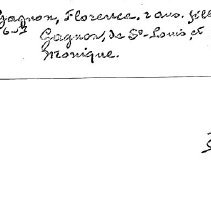 Gagnon, Florence, 2 ans. fille
Gagnon, de St-Louis, et
Monique.